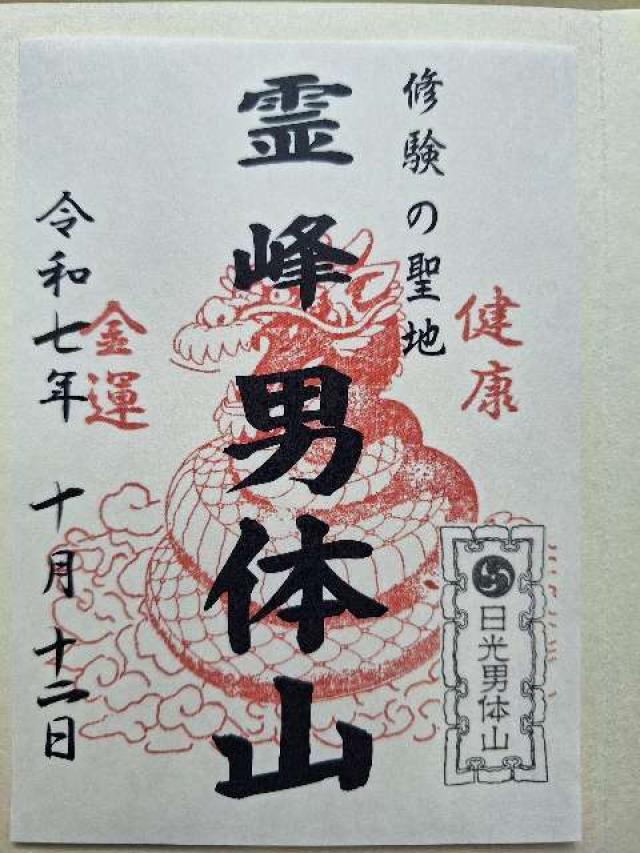 修験の聖地
健康
霊峰男体山
金運
令和七年 十月 十二日
日光男体山